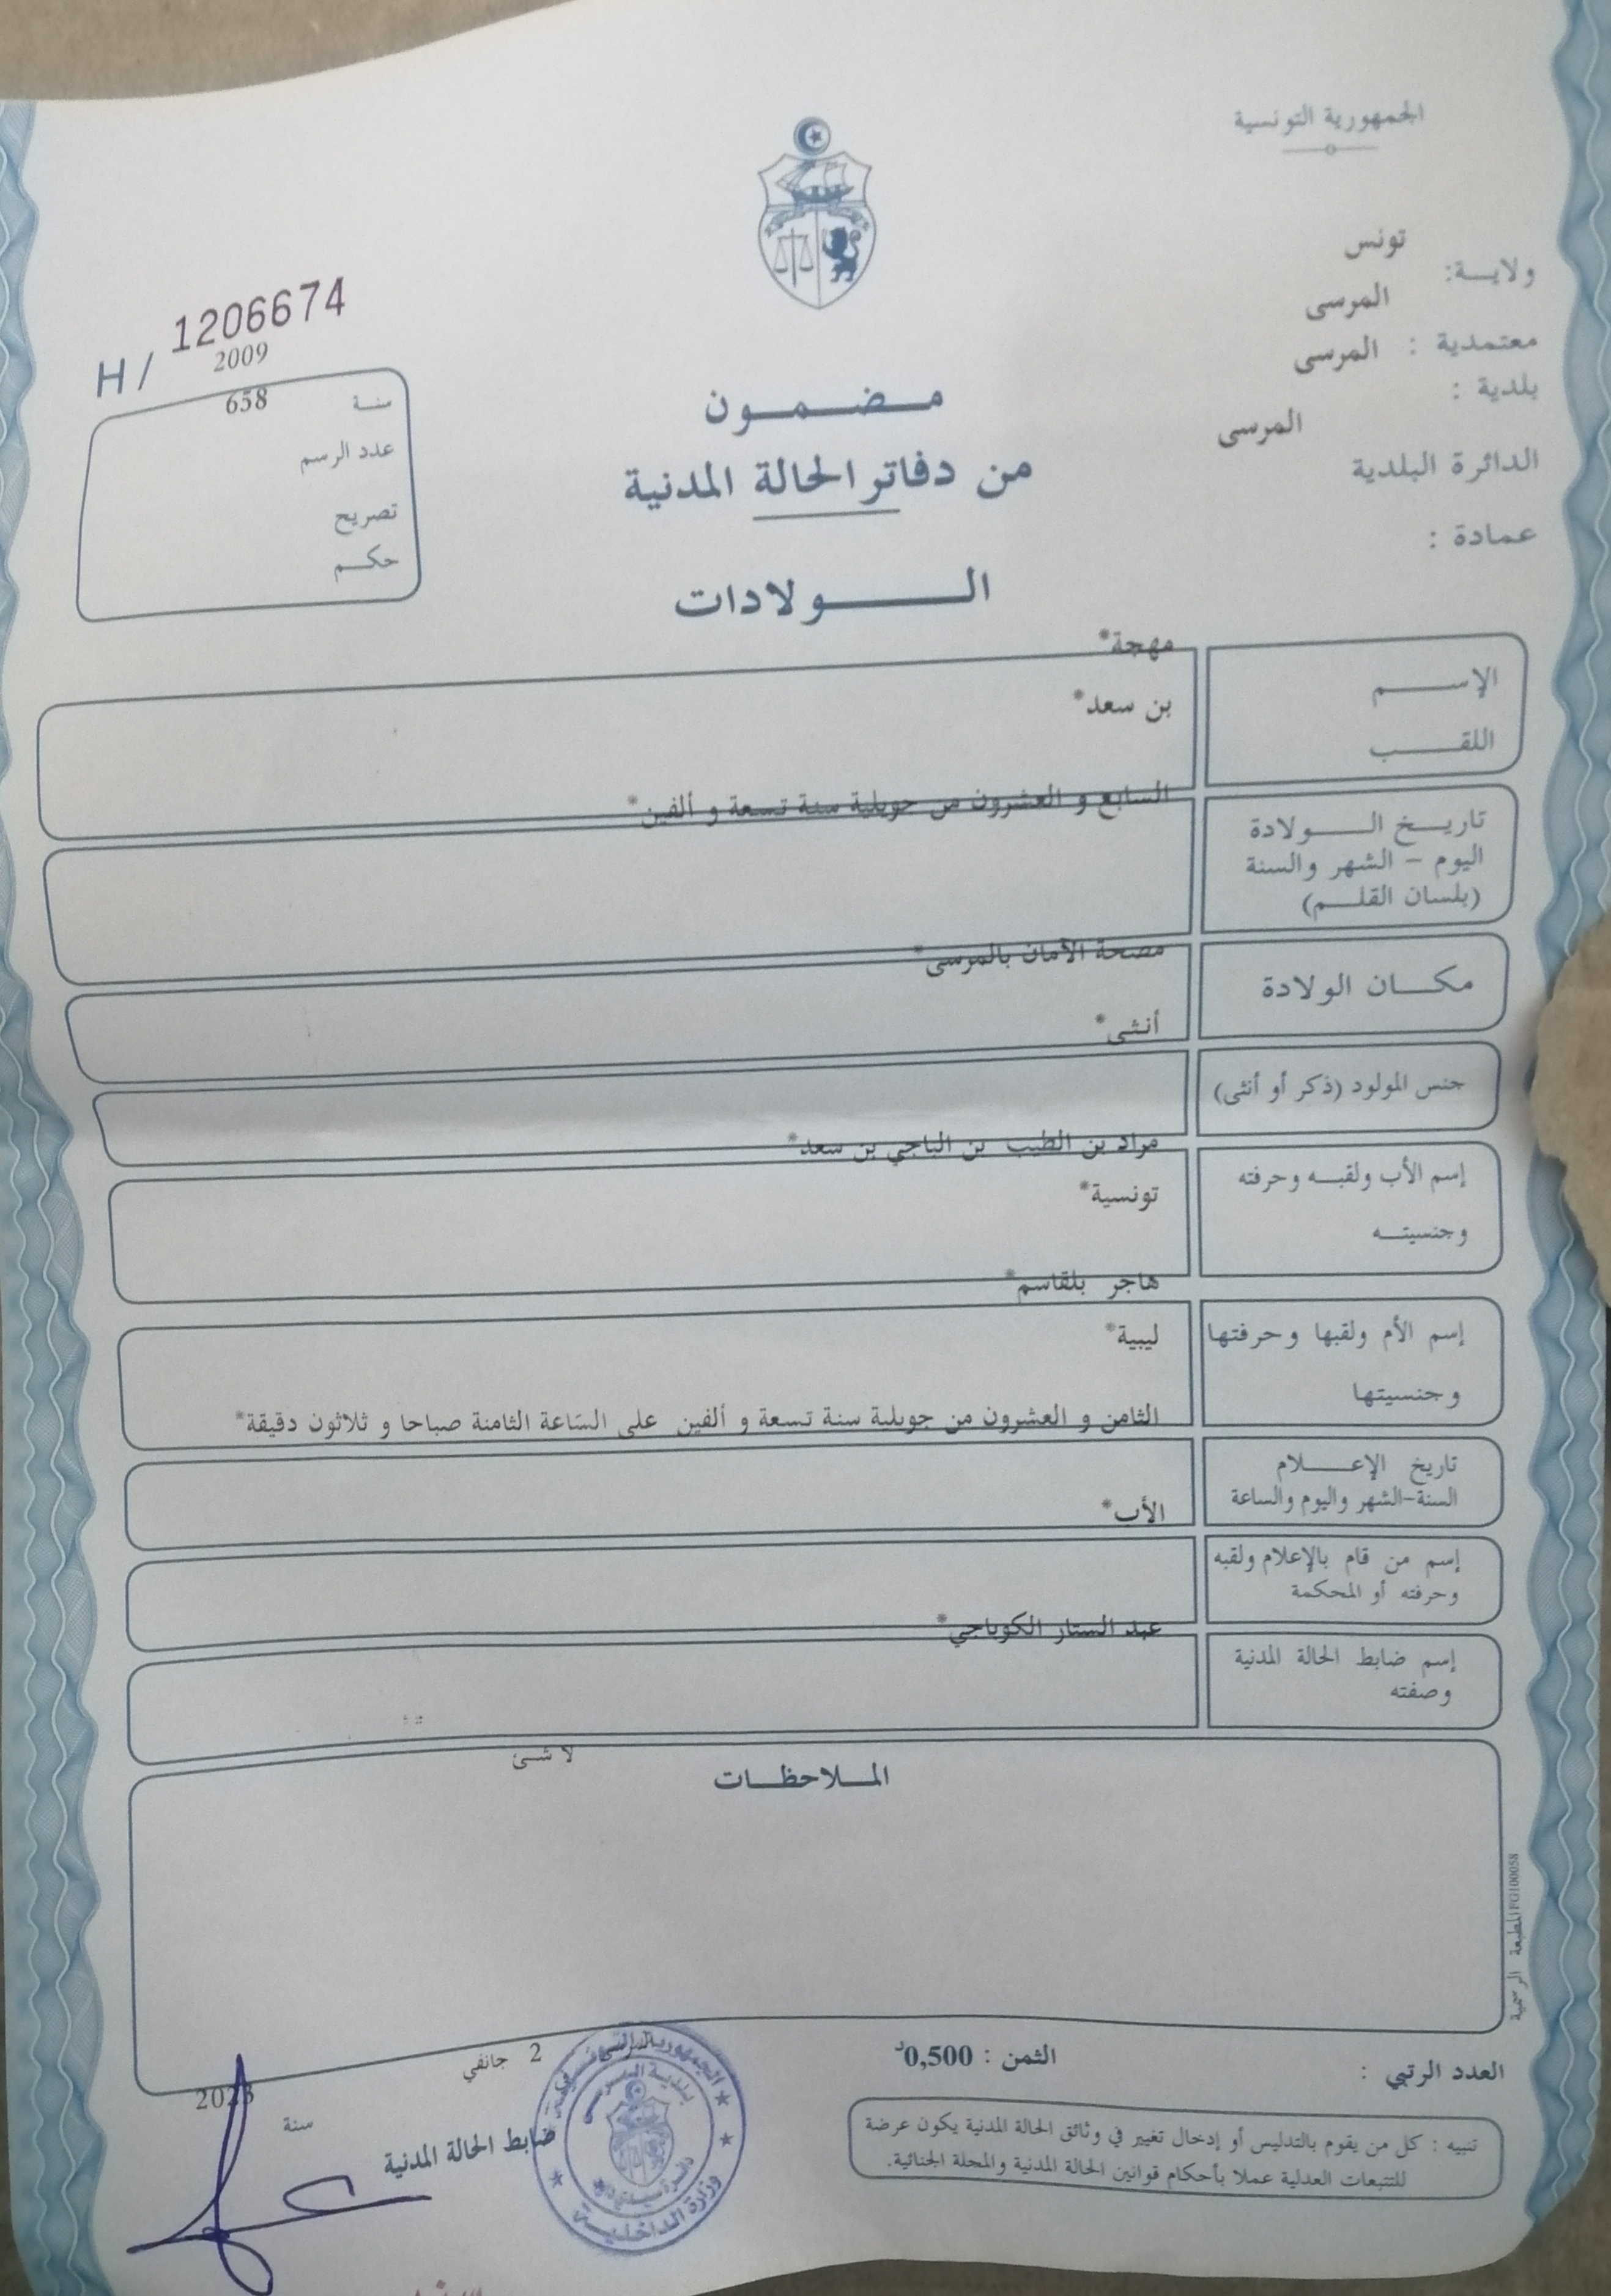 الجمهورية التونسية
تونس
ولايـــة:
المرسى
معتمدية :
المرسى
بلدية :
المرسى
الدائرة البلدية
عمادة :
H/ 1206674
2009
سنـة
658
عدد الرسم
تصريح
حكـــم
مــضــمــون
من دفاتر الحالة المدنية
الــــولادات
مهجة*
الإســـــم
بن سعد*
اللقـــــب
السابع و العشرون من جويلية سنة تسعة و ألفين*
تاريــخ الـــــولادة
اليوم – الشهر والسنة
(بلسان القلـــم)
مصحة الأمان بالمرسى*
مكـــان الولادة
أنثى*
جنس المولود (ذكر أو أنثى)
مراد بن الطيب بن الباجي بن سعد*
إسم الأب ولقبــه وحرفته
تونسية*
وجنسيتــه
هاجر بلقاسم*
إسم الأم ولقبها وحرفتها
ليبية*
وجنسيتها
الثامن و العشرون من جويلية سنة تسعة و ألفين على السّاعة الثامنة صباحا و ثلاثون دقيقة*
تاريخ الإعـــــلام
السنة-الشهر واليوم والساعة
الأب*
إسم من قام بالإعلام ولقبه
وحرفته أو المحكمة
عبد الستار الكوباجي*
إسم ضابط الحالة المدنية
وصفته
لا شئ
الملاحظات
المطبعة الرسمية FG100058
العدد الرتبي :
الثمن : 0,500د
2 جانفي
2023
سنة
ضابط الحالة المدنية
تنبيه : كل من يقوم بالتدليس أو إدخال تغيير في وثائق الحالة المدنية يكون عرضة
للتتبعات العدلية عملا بأحكام قوانين الحالة المدنية والمجلة الجنائية.
الجمهورية التونسية
بلدية المرسى
وزارة الداخلية